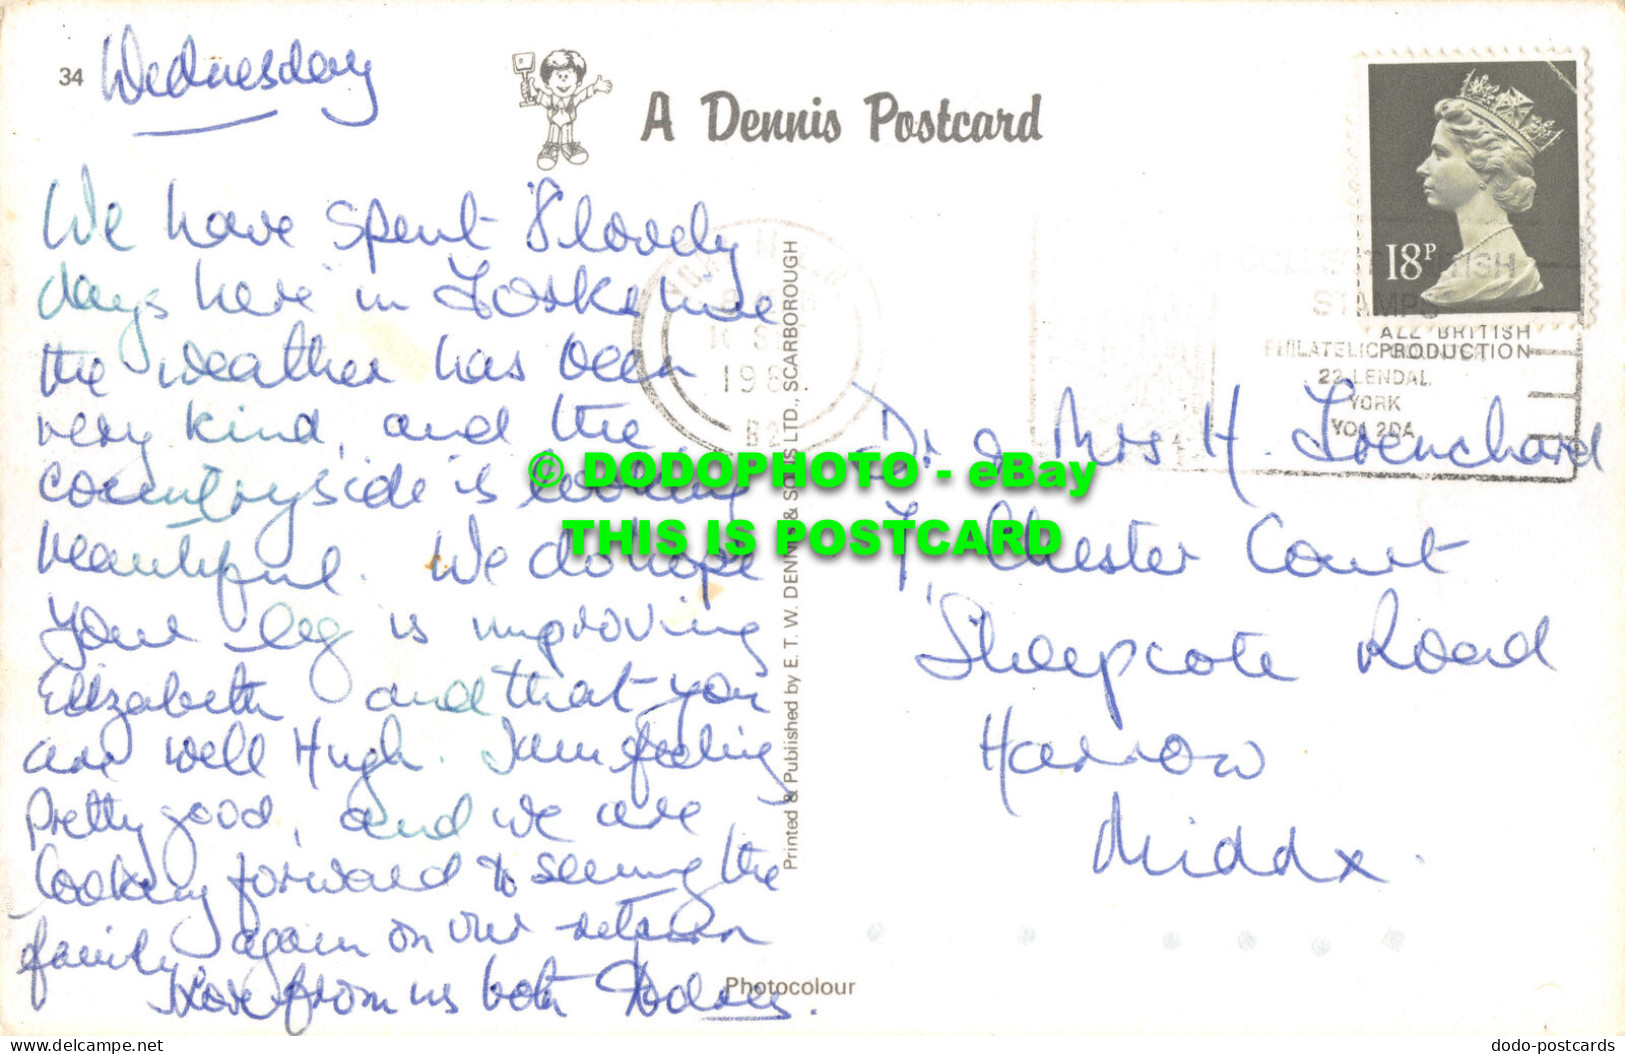 34
Wednesday
A Dennis Postcard
We have spent 8 lovely
days here in Yorkshire
the weather has been
very kind, and the
countryside is looking
beautiful. We do hope
your leg is improving
Elizabeth and that you
are well Hugh. I am feeling
pretty good, and we are
looking forward to seeing the
family again on our return
Love from us both
Printed & Published by E. T. W. DENNIS & SONS LTD., SCARBOROUGH
Photocolour
18P
COLLECT BRITISH
STAMPS
ALL BRITISH
PHILATELIC PRODUCTION
22 LENDAL
YORK
YO1 2DA
198
Dr & Mrs H. Trenchard
7, Chester Court
Sheepcote Road
Harrow
Middx.
© DODOPHOTO - eBay
THIS IS POSTCARD
www.delcampe.net
dodo-postcards